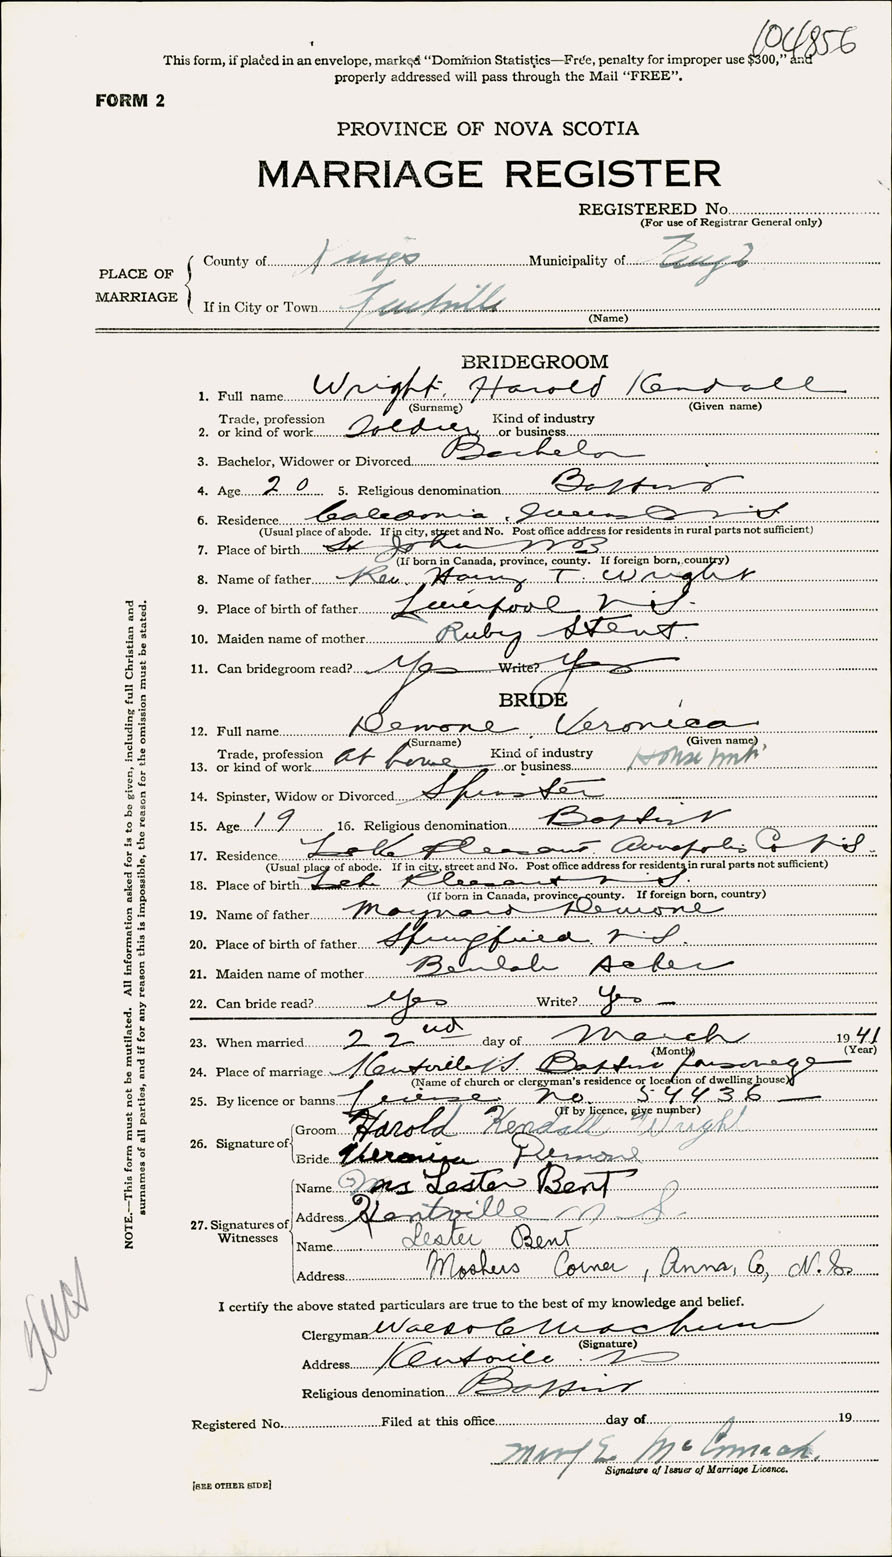 104856
This form, if placed in an envelope, marked "Dominion Statistics—Free, penalty for improper use $300," and
properly addressed will pass through the Mail "FREE".
FORM 2
PROVINCE OF NOVA SCOTIA
MARRIAGE REGISTER
REGISTERED No.
(For use of Registrar General only)
PLACE OF MARRIAGE
County of Kings Municipality of Kings
If in City or Town Kentville
(Name)
BRIDEGROOM
1. Full name Wright, Harold Kendall
(Surname) (Given name)
2. Trade, profession or kind of work Soldier Kind of industry or business
3. Bachelor, Widower or Divorced Bachelor
4. Age 20 5. Religious denomination Baptist
6. Residence Caledonia, Queens Co N.S.
(Usual place of abode. If in city, street and No. Post office address for residents in rural parts not sufficient)
7. Place of birth St John N B
(If born in Canada, province, county. If foreign born, country)
8. Name of father Rev. Harry T. Wright
9. Place of birth of father Liverpool N.S.
10. Maiden name of mother Ruby Stent.
11. Can bridegroom read? Yes Write? Yes
BRIDE
12. Full name Demone, Veronica
(Surname) (Given name)
13. Trade, profession or kind of work At home Kind of industry or business House work
14. Spinster, Widow or Divorced Spinster
15. Age 19 16. Religious denomination Baptist
17. Residence Lake Pleasant. Annapolis Co N.S.
(Usual place of abode. If in city, street and No. Post office address for residents in rural parts not sufficient)
18. Place of birth Lake Pleasant N.S.
(If born in Canada, province, county. If foreign born, country)
19. Name of father Maynard Demone
20. Place of birth of father Springfield. N.S.
21. Maiden name of mother Beulah Acker
22. Can bride read? Yes Write? Yes —
23. When married 22nd day of March 1941
(Month) (Year)
24. Place of marriage Kentville N.S. Baptist parsonage
(Name of church or clergyman's residence or location of dwelling house)
25. By licence or banns License No. 54436 —
(If by licence, give number)
26. Signature of
Groom Harold Kendall Wright
Bride Veronica Demone
27. Signatures of Witnesses
Name Mrs Lester Bent
Address Kentville N.S.
Name Lester Bent
Address Moshers Corner, Anna, Co, N.S.
I certify the above stated particulars are true to the best of my knowledge and belief.
Clergyman
(Signature)
Address Kentville N.S.
Religious denomination Baptist
Registered No. Filed at this office day of 19
Mary E. McCormack.
Signature of Issuer of Marriage Licence.
[SEE OTHER SIDE]
NOTE.—This form must not be mutilated. All information asked for is to be given, including full Christian and
surnames of all parties, and if for any reason this is impossible, the reason for the omission must be stated.